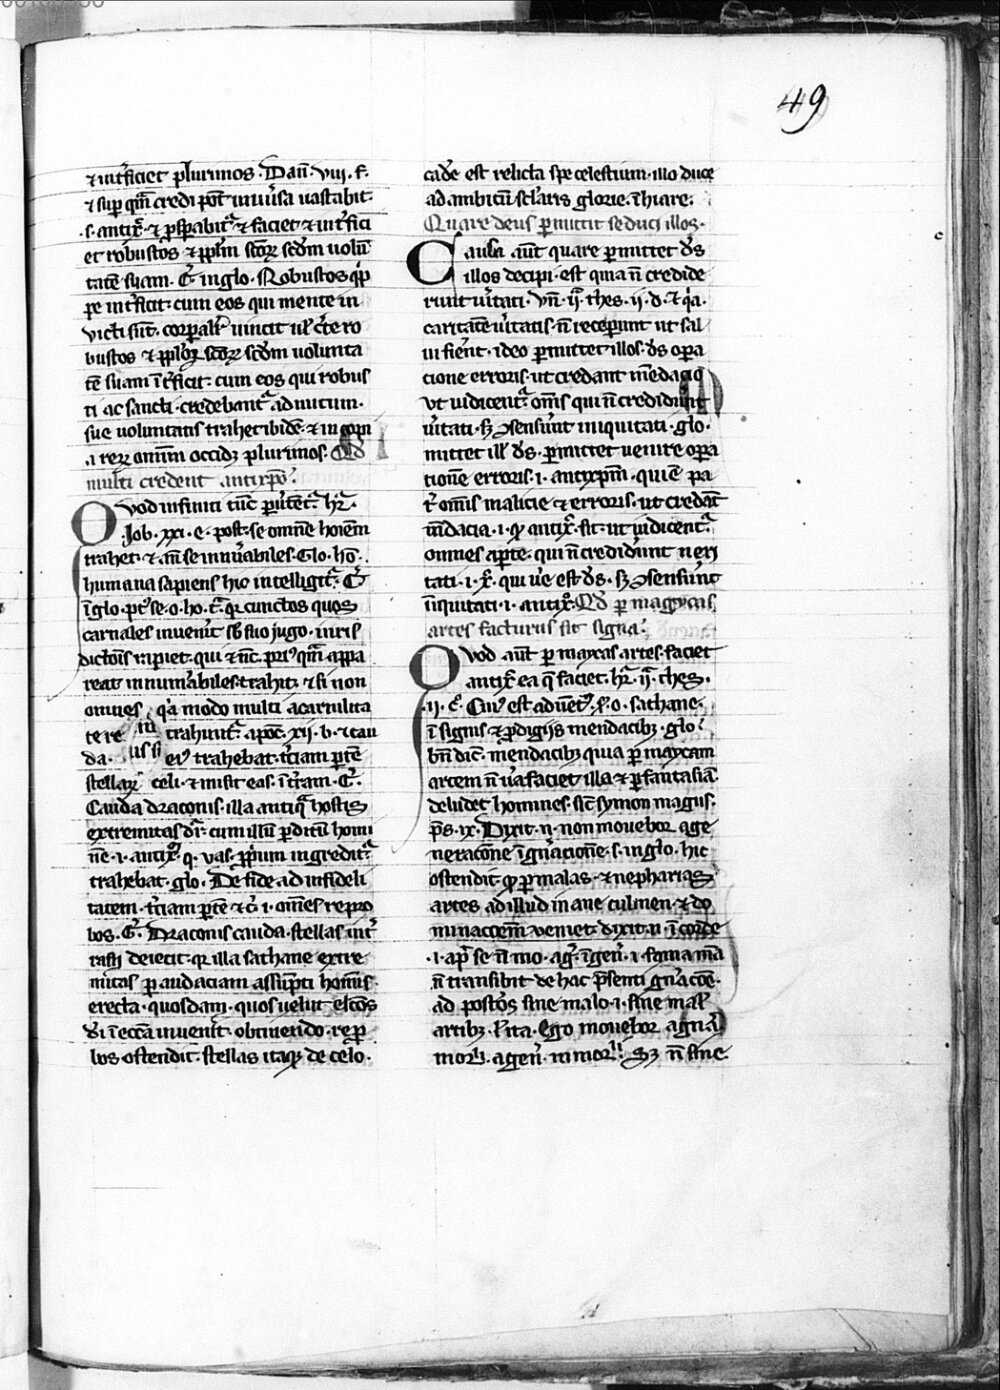 49
⁊ int̄ficiet plurimos. Dan̄. viii. f.
⁊ sup̄ qm̄ credi pōt univ̄sa vastabit.
.s. antix̄. ⁊ p̄spabit̄ ⁊ faciet ⁊ int̄fici
et robustos ⁊ pp̄lm sc̄oꝝ sc̄dm volū
tatē suam. G̾ in glo. Robustos q̄p
pe int̄ficit: cum eos qui mente in
victi sūt. corp̄alit̄ vincit vl̄ c̄te ro
bustos ⁊ pp̄loꝝ sc̄oꝝ sc̄dm volunta
tē suam īt̄ficit: cum eos qui robus
ti ac sancti credebant̄ ad nutum.
sue voluntatis trahet ibidē ⁊ in copi
a reꝝ omnium occidꝫ plurimos. Qd̄
multi credent antixp̄o.
Qvod infiniti tūc
Job. xxi. e. post se omnē hoīem
trahet ⁊ an̄ se innūabiles. Glo. hō.
humana sapiens hic intelligit̄. G̾
ī glo. pt̾ se. o. ho. t̄. qꝛ cunctos quos
carnales invenit sb̄ suo jugo. iuris
dictiōis rapiet. qui ⁊ nc̄. pri9 qm̄ appa
reat innum̄abiles trahit. ⁊ si non
omnes. q̄a modo multi a carnilita
te re trahunt̄. apoc̄. xii. b. ⁊ cau
da. ei9 trahebat. t̄ciam p̄tē
stellaꝝ celi. ⁊ misit eas. ī t̄ram. G̾.
Cauda draconis. illa antiq̄ hostis
extremitas dr̄: cum illū p̄ditū homi
nē .i. antix̄m q. vas. pp̄rium ingredit̄
trahebat. glo. De fide. ad infideli
tatem. t̄ciam p̄tē ⁊ c̄. i. om̄es repro
bos. G̾. Draconis cauda. stellas int̄
rasti deiecit. qꝛ illa sathane extre
mitas p̄ audaciam assūp̄ti homīs
erecta. quosdam. quos velut elc̄os
d̄i ī ecc̄a invenit. obtinendo. rep̄
bos ostendit. stellas itaqꝫ de celo.
cad̄e est relicta spe celestium. illo duce
ad ambitū sc̄laris glorie. īhiare.
Quare deus p̄mittit seduci illos.
Causa aūt quare p̄mittet d̄s
illos decipi. est quia n̄ credide
runt v̄itati. Vn̄. ii. thes. ii. d. ⁊ q̄a.
caritatē v̄itatis. n̄ recep̄unt ut sal
vi fierent. ideo p̄mittet illos. d̄s op̄a
cione erroris. ut credant mēdacio
vt iudicent̄. om̄s qui n̄ credidūnt
v̄itati. sꝫ ꝯsensūnt iniquitati. glo.
mittet ill̄. d̄s. p̄mittet venire op̄a
tionē erroris. i. antixp̄m. qui ē pa
t̄ om̄is malicie ⁊ erroris. ut credāt
mēdacia .i. ꝙ antix̄. sit. ut iudicent̄.
omnes ap̄te. qui n̄ credidūnt veri
tati. i. x̄. qui v̄e est d̄s. sꝫ ꝯsensūnt
īiquitati. i. antix̄. Qd̄ p̄ magycas
artes facturus sit signa.
Qvod aūt p̄ maycas artes. faciet
antix̄ ea q̄ faciet. hr̄. ii. thes.
.ii. c̄. Cui9 est advent9. s. o. sathane.
ī signis. ⁊ p̄digiis mendacibꝫ. glo.
bn̄ dic̄. mendacibꝫ quia p̄ maycam
artem n̄ v̄a faciet illa ⁊ p̄ fantasiā
deludet homines. sic̄ symon magus.
p̄s. ix. Dixit. n. non movebor a ge
neracōne ī gn̄acionē. s. in glo. hic
ostendit. ꝙ p̄ malas. ⁊ nepharias
artes. ad illud inane culmen. ⁊ do
minacōem veniet. dixit. n. ī corde
.i. ap̄ se. n̄ mo. a g̾. ī gen̄. i. fama mā
n̄ transibit de hac p̄senti gn̄acōe.
ad postos sine malo. i. sine mal̄
artibꝫ. l̄ ita. Ego movebor a gn̄a
morti. a gen̄. in morti. Sꝫ n̄ sine.